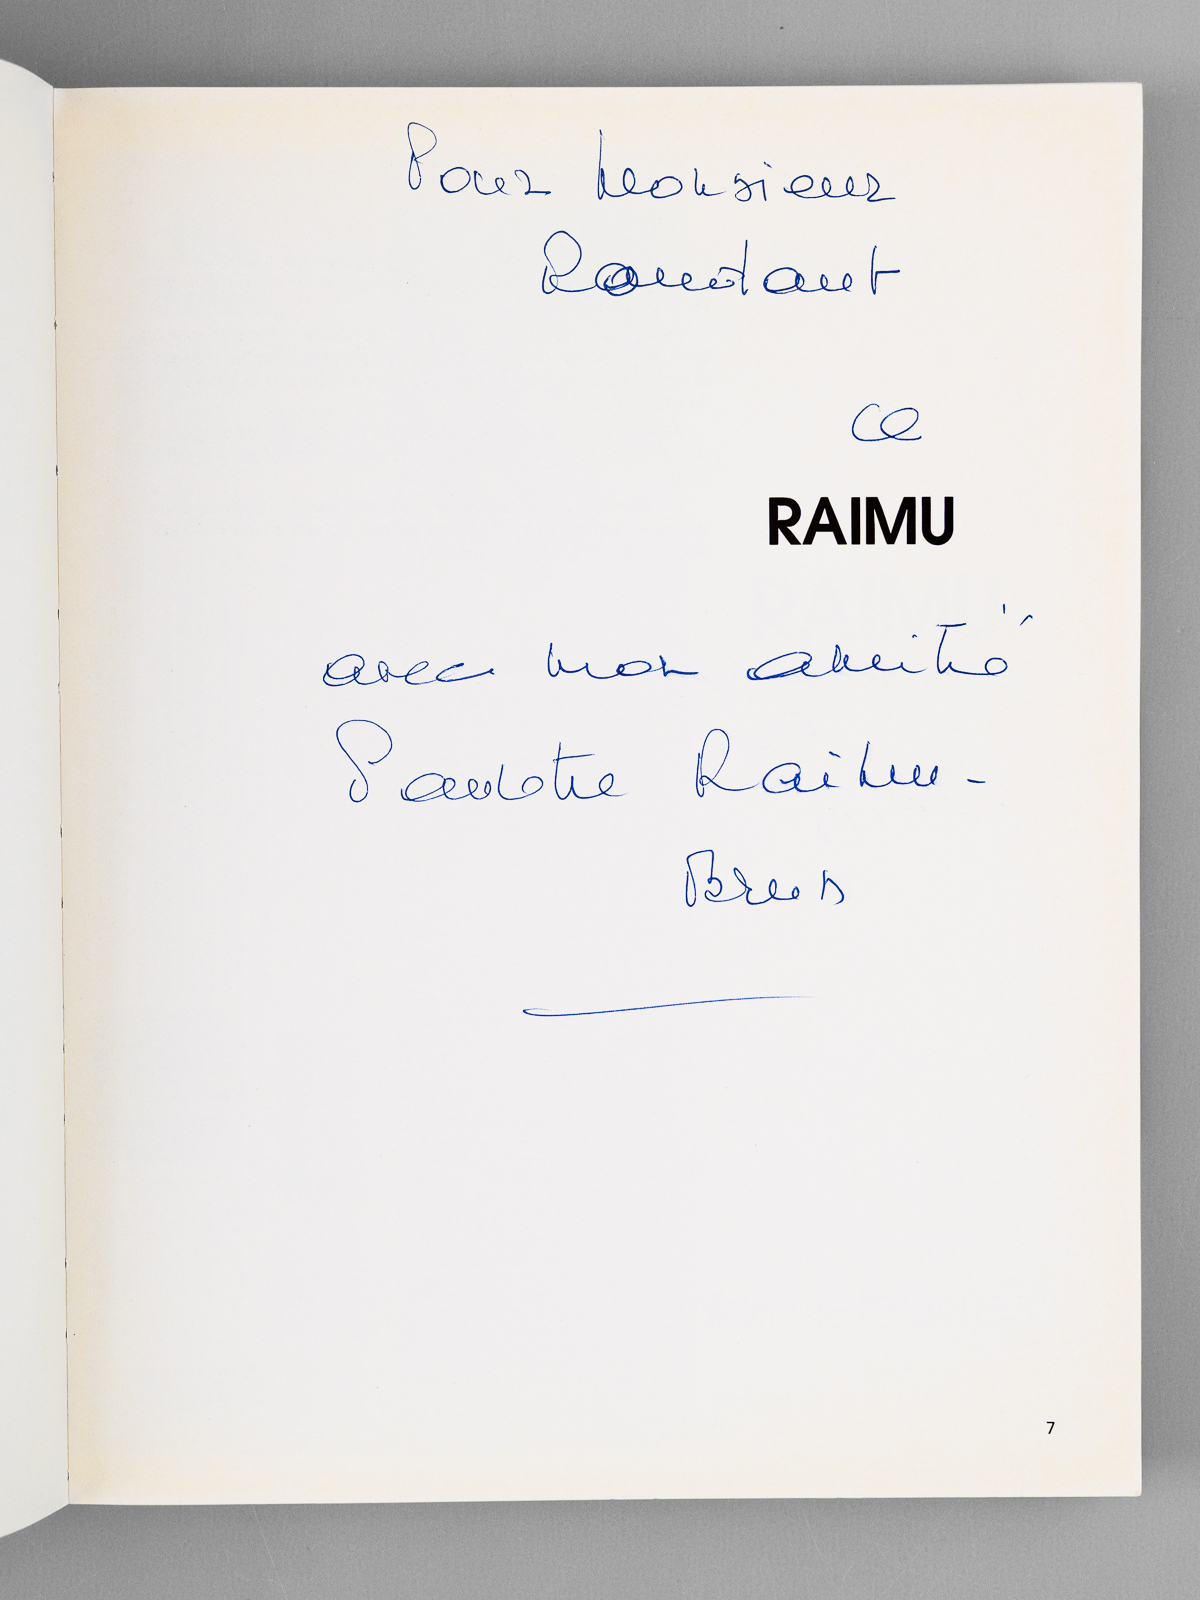 Pour Monsieur
ce
RAIMU
avec mon amitié
Paulette Raimu -
Brun
7